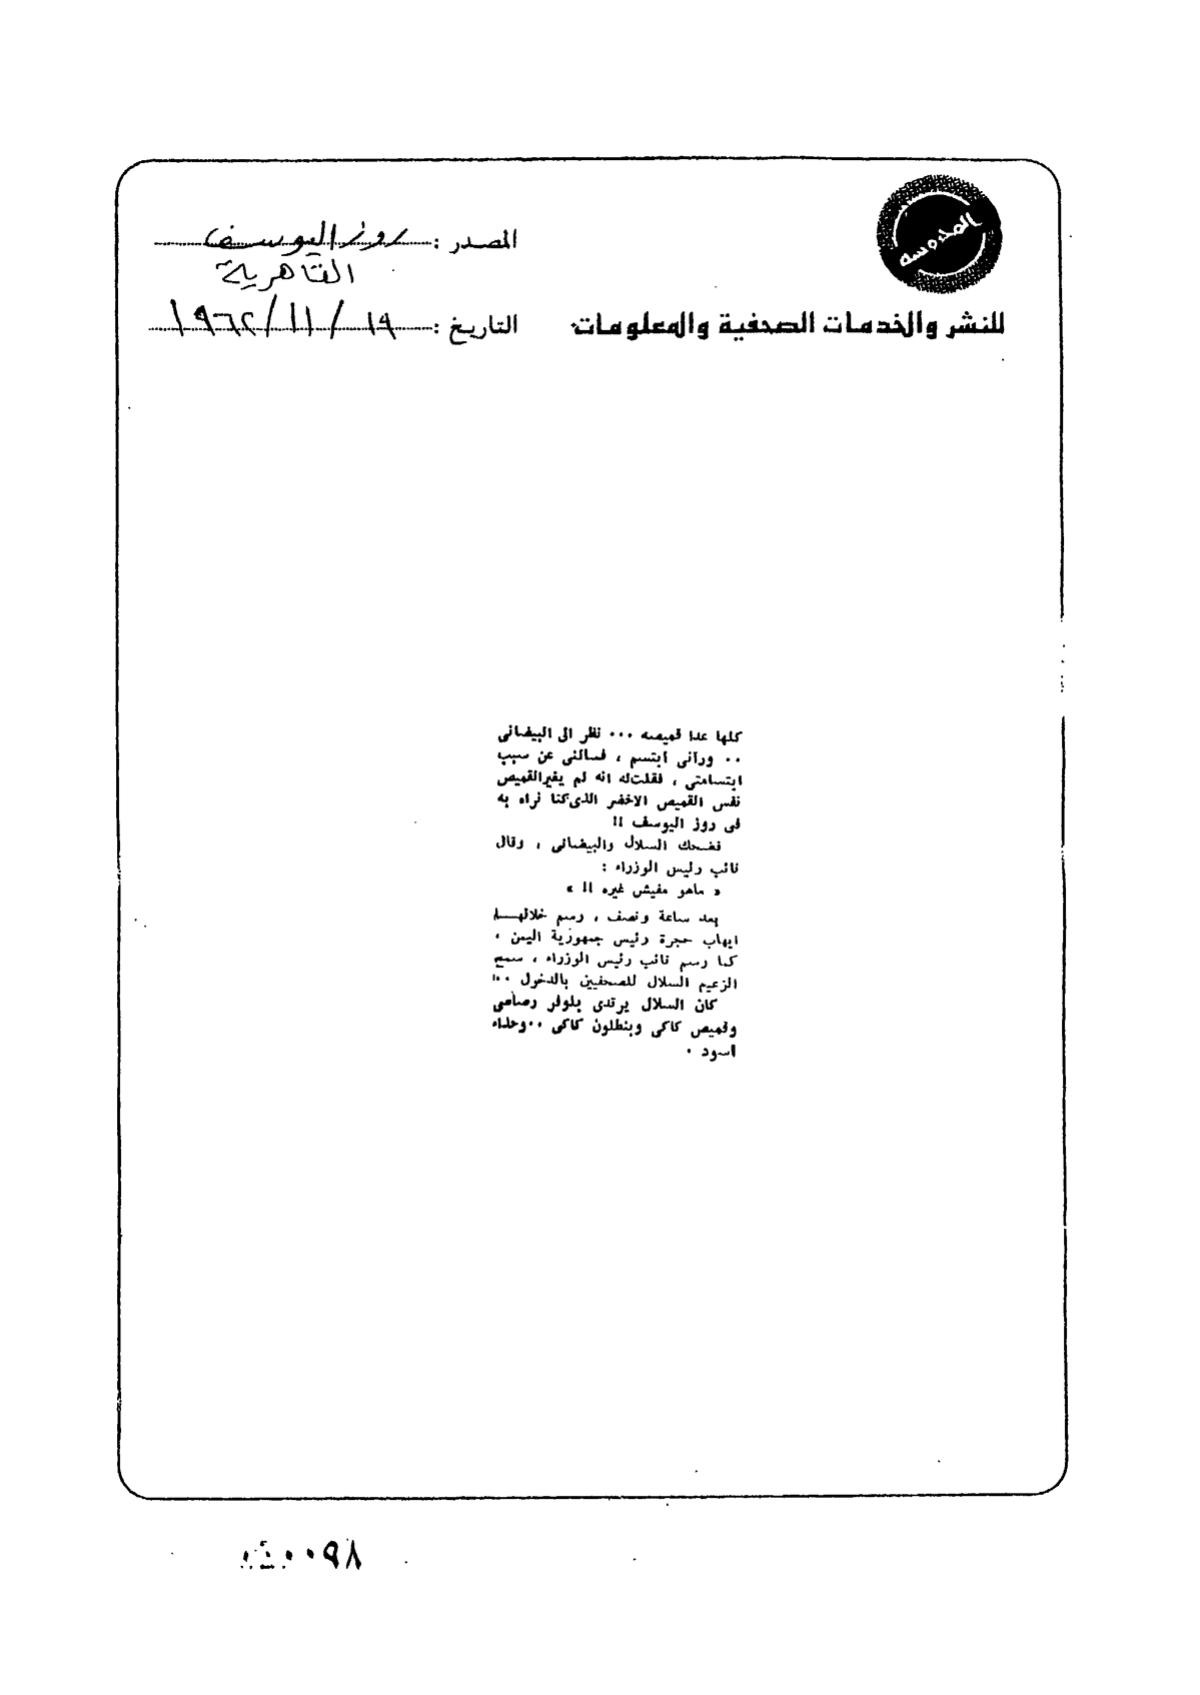 المحروسه
المصدر : روز اليوسف
القاهرية
للنشر والخدمات الصحفية والمعلومات
التاريخ : ١٩ / ١١ / ١٩٦٢
كلها عدا قميصه ٠٠٠ نظر الى البيضانى
٠٠ ورآنى ابتسم ، فسالنى عن سبب
ابتسامتى ، فقلت له انه لم يغير القميص
نفس القميص الاخضر الذى كنا نراه به
فى روز اليوسف !!
فضحك السلال والبيضانى ، وقال
نائب رئيس الوزراء :
« ماهو مفيش غيره !! »
بعد ساعة ونصف ، رسم خلالهـا
ايهاب حجرة رئيس جمهورية اليمن ،
كما رسم نائب رئيس الوزراء ، سمح
الزعيم السلال للصحفيين بالدخول ٠٠
كان السلال يرتدى بلوفر رصاصى
وقميص كاكى وبنطلون كاكى ٠٠ وحذاء
اسود ٠